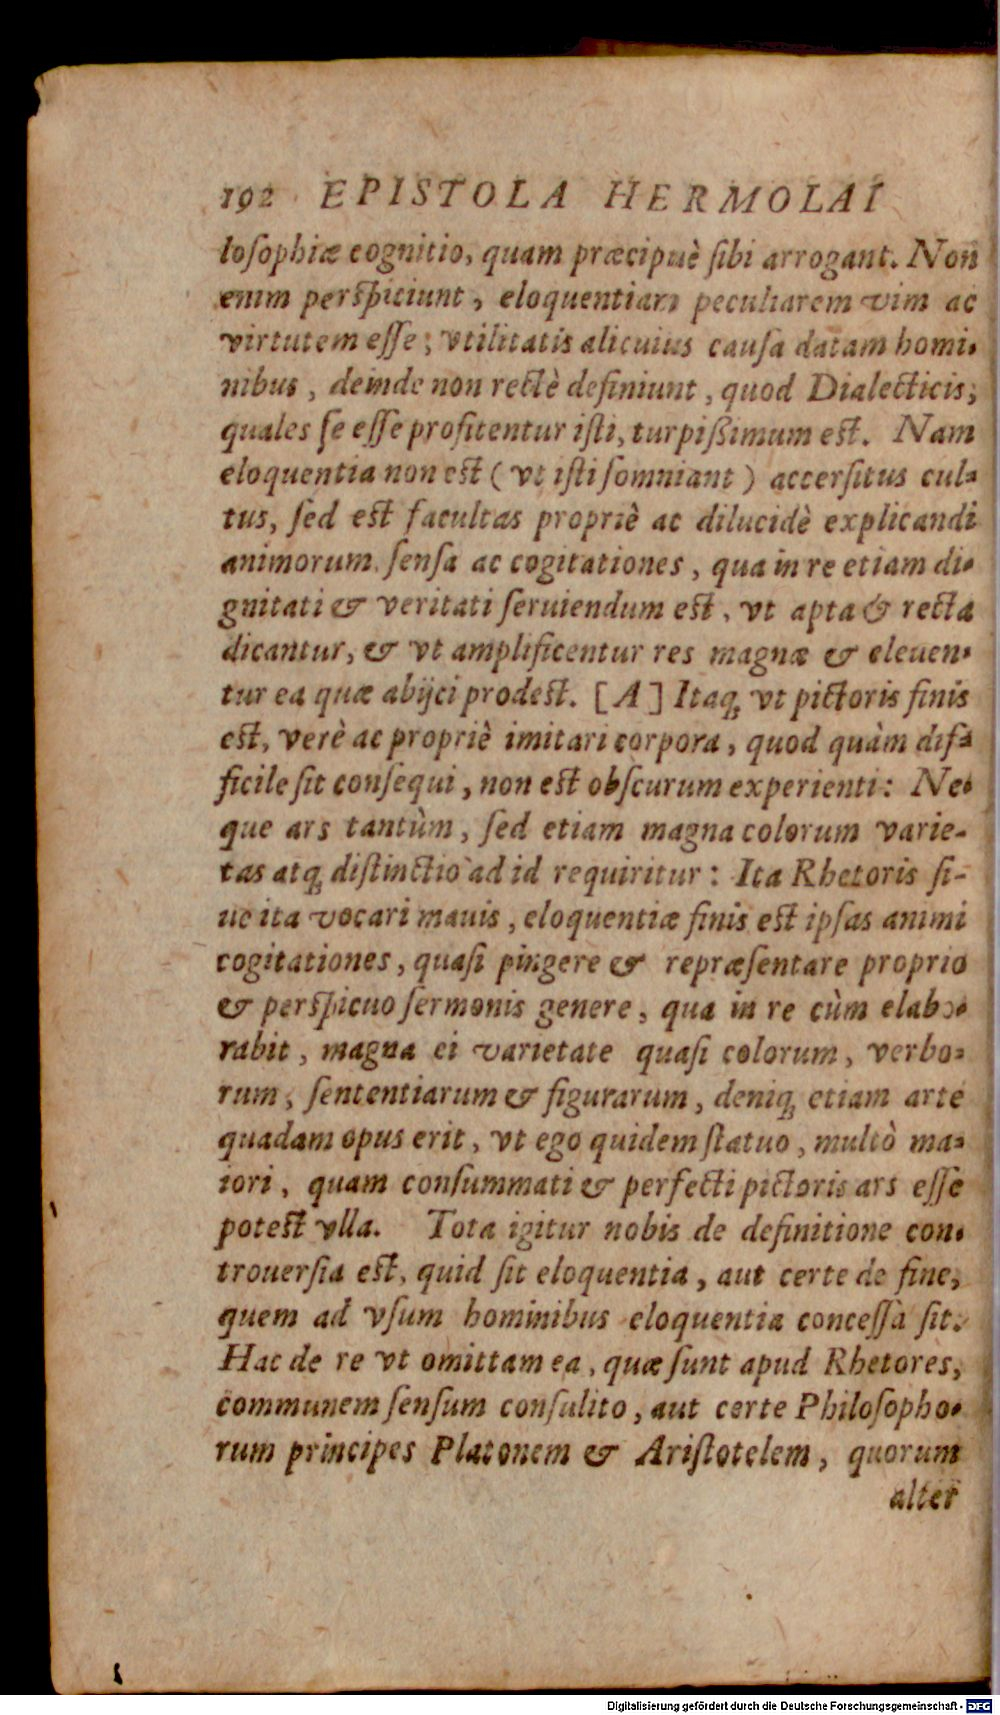 192 EPISTOLA HERMOLAI
loſophiæ cognitio, quam præcipuè ſibi arrogant. Non
enim perſpiciunt, eloquentiam peculiarem vim ac
virtutem eſſe; vtilitatis alicuius cauſa datam homi-
nibus, deinde non rectè definiunt, quod Dialecticis,
quales ſe eſſe profitentur iſti, turpißimum eſt. Nam
eloquentia non eſt (vt iſti ſomniant) accerſitus cul-
tus, ſed eſt facultas propriè ac dilucidè explicandi
animorum ſenſa ac cogitationes, qua in re etiam di-
gnitati & veritati ſeruiendum eſt, vt apta & recta
dicantur, & vt amplificentur res magnæ & eleuen-
tur ea quæ abijci prodeſt. [A] Itaq; vt pictoris finis
eſt, verè ac propriè imitari corpora, quod quàm dif-
ficile ſit conſequi, non eſt obſcurum experienti: Ne-
que ars tantùm, ſed etiam magna colorum varie-
tas atq; diſtinctio ad id requiritur: Ita Rhetoris ſi-
ue ita vocari mauis, eloquentiæ finis eſt ipſas animi
cogitationes, quaſi pingere & repræſentare proprio
& perſpicuo ſermonis genere, qua in re cùm elabo-
rabit, magna ei varietate quaſi colorum, verbo-
rum, ſententiarum & figurarum, deniq; etiam arte
quadam opus erit, vt ego quidem ſtatuo, multò ma-
iori, quam conſummati & perfecti pictoris ars eſſe
poteſt vlla. Tota igitur nobis de definitione con-
trouerſia eſt, quid ſit eloquentia, aut certe de fine,
quem ad vſum hominibus eloquentia conceſſa ſit.
Hac de re vt omittam ea, quæ ſunt apud Rhetores,
communem ſenſum conſulito, aut certe Philoſopho-
rum principes Platonem & Ariſtotelem, quorum
alter
Digitalisierung gefördert durch die Deutsche Forschungsgemeinschaft - DFG